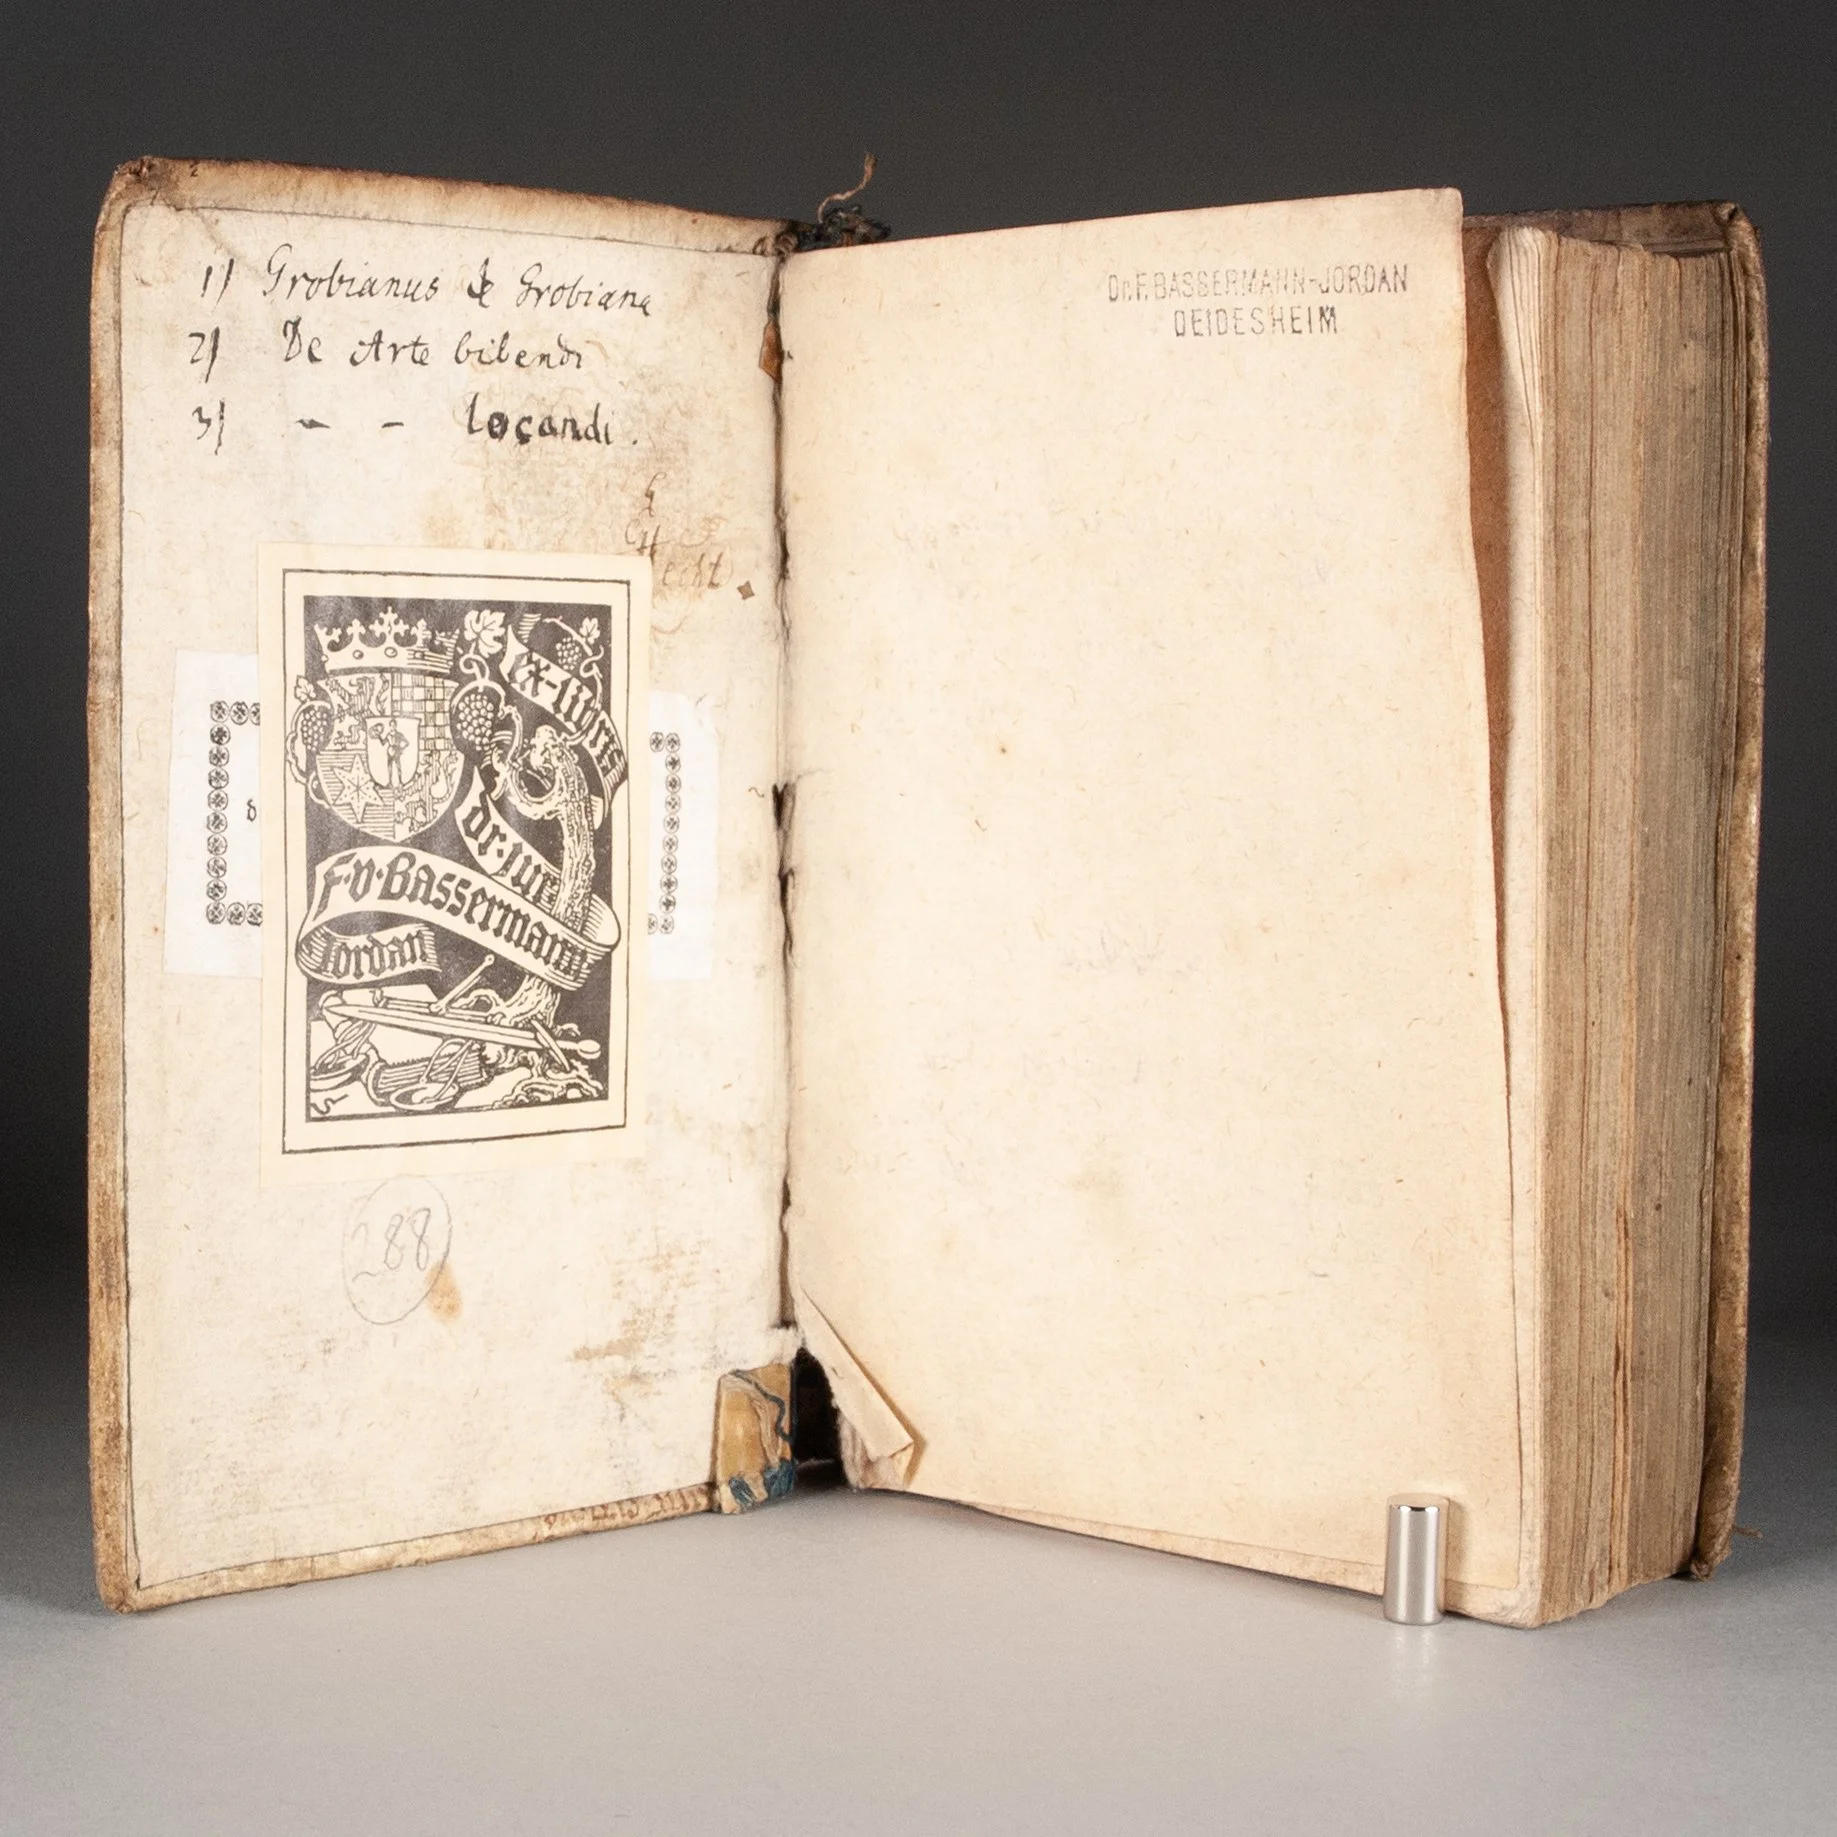 1) Grobianus & Grobiana
2) De Arte bibendi
3) - - Locandi.
echt
Ex-libris
dr. jur.
F. v. Bassermann
Jordan
288
Dr. F. BASSERMANN-JORDAN
DEIDESHEIM